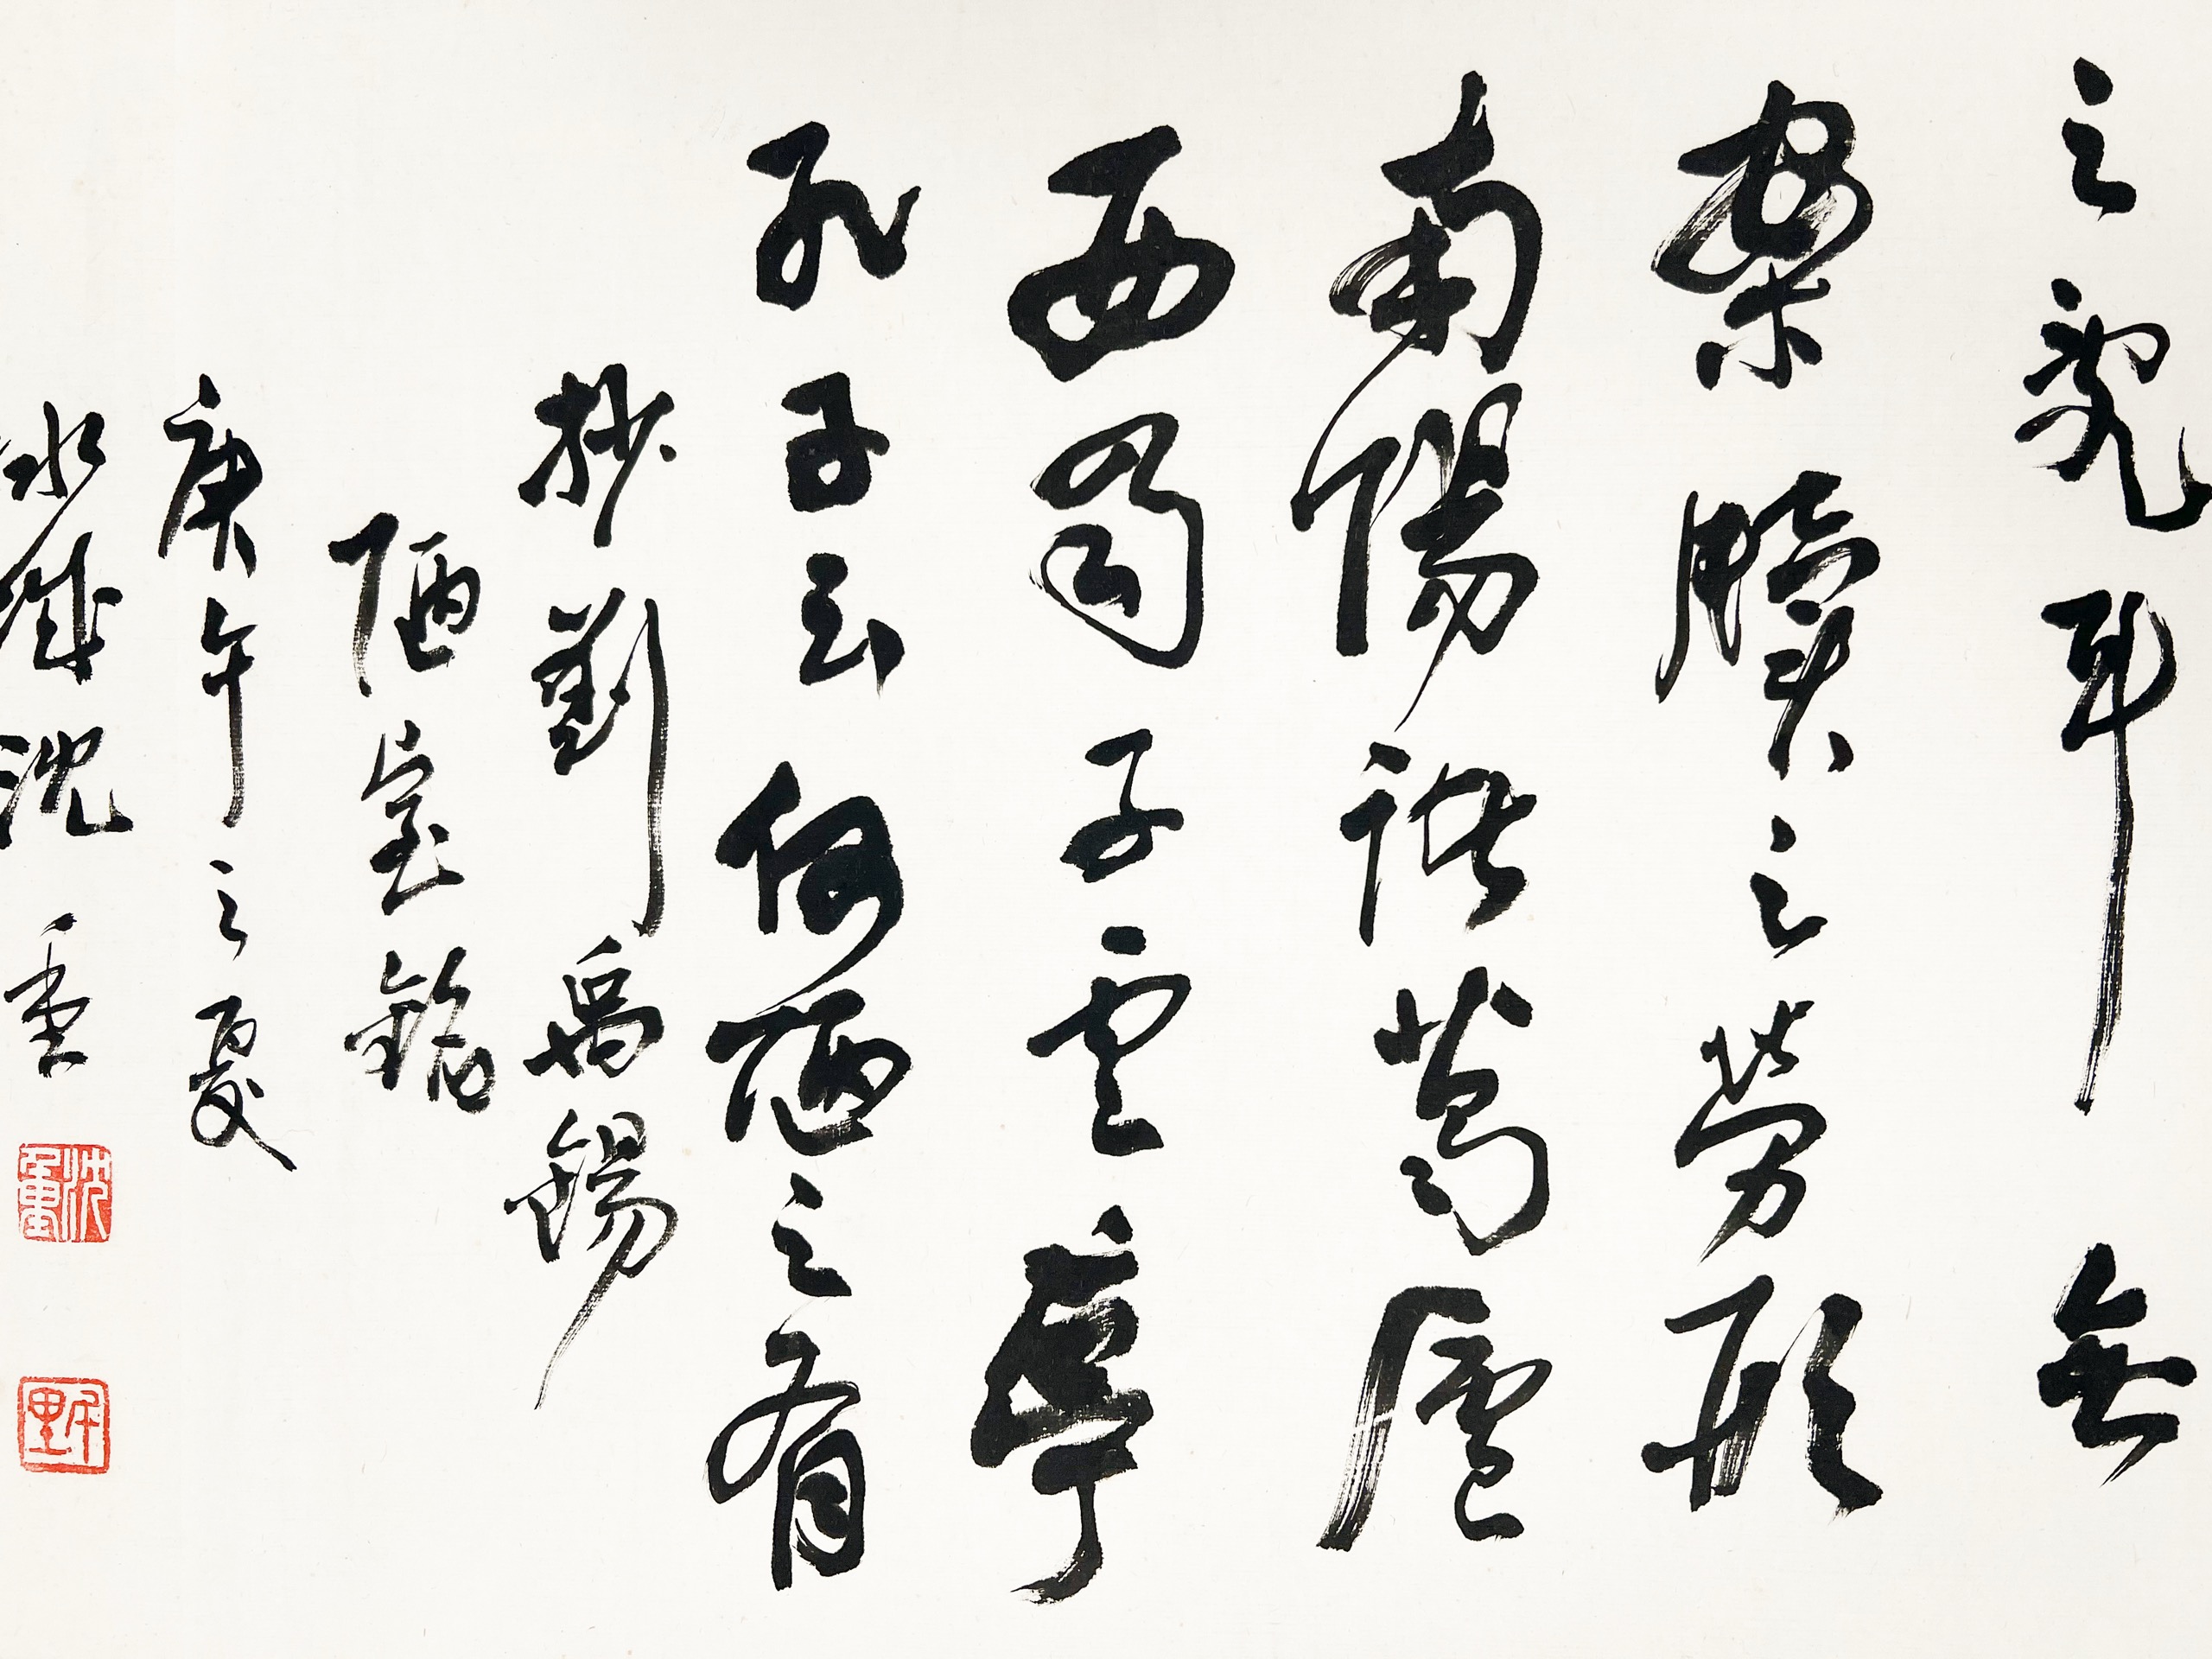 之亂耳無
案牘之勞形
南陽諸葛廬
西蜀子雲亭
孔子云何陋之有
抄劉禹錫
陋室銘
庚午之夏
冰城沈重
沈重
野